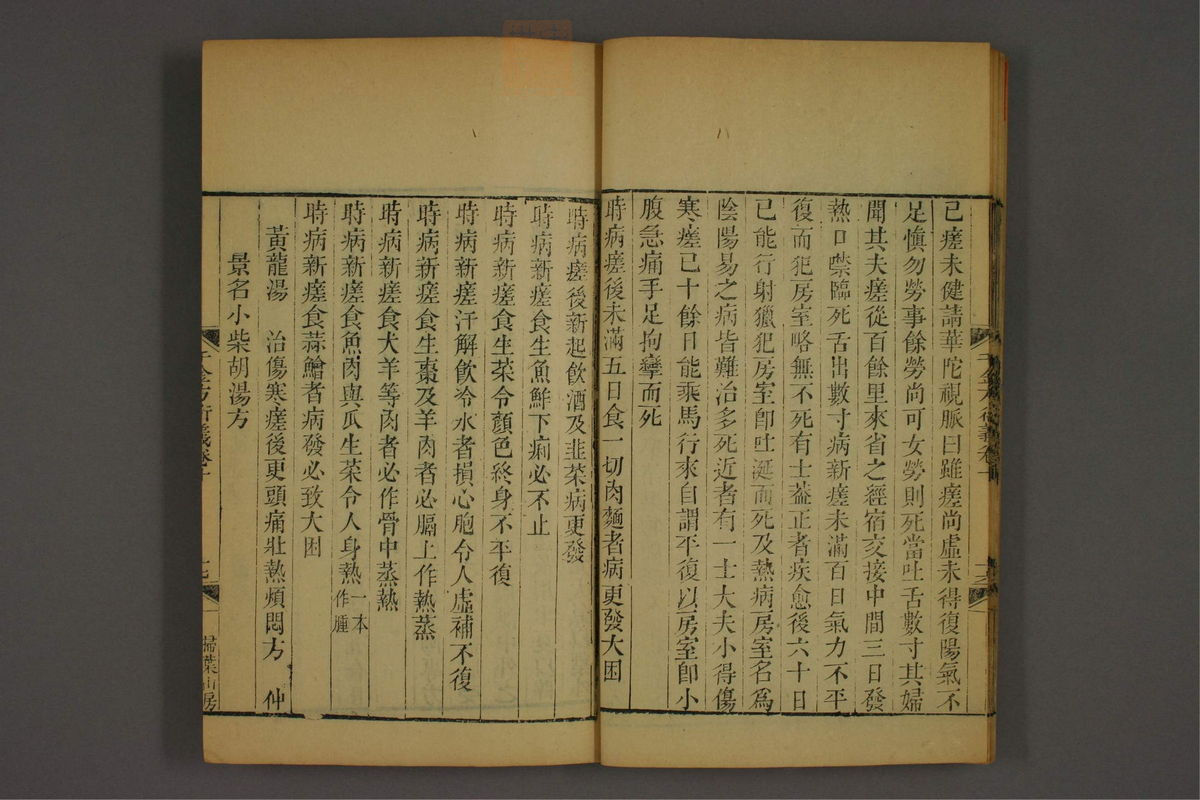 已瘥未健請華陀視脈曰雖瘥尚虛未得復陽氣不
足愼勿勞事餘勞尚可女勞則死當吐舌數寸其婦
聞其夫瘥從百餘里來省之經宿交接中間三日發
熱口噤臨死舌出數寸病新瘥未滿百日氣力不平
復而犯房室略無不死有士葢正者疾愈後六十日
已能行射獵犯房室卽吐涎而死及熱病房室名爲
陰陽易之病皆難治多死近者有一士大夫小得傷
寒瘥已十餘日能乘馬行來自謂平復以房室卽小
腹急痛手足拘攣而死
時病瘥後未滿五日食一切肉麵者病更發大困
時病瘥後新起飮酒及韭菜病更發
時病新瘥食生魚鮓下痢必不止
時病新瘥食生菜令顏色終身不平復
時病新瘥汗解飮冷水者損心胞令人虛補不復
時病新瘥食生棗及羊肉者必膈上作熱蒸
時病新瘥食犬羊等肉者必作骨中蒸熱
時病新瘥食魚肉與瓜生菜令人身熱一本作腫
時病新瘥食蒜鱠者病發必致大困
黃龍湯 治傷寒瘥後更頭痛壯熱煩悶方 仲
景名小柴胡湯方
千金方衍義卷十
掃葉山房